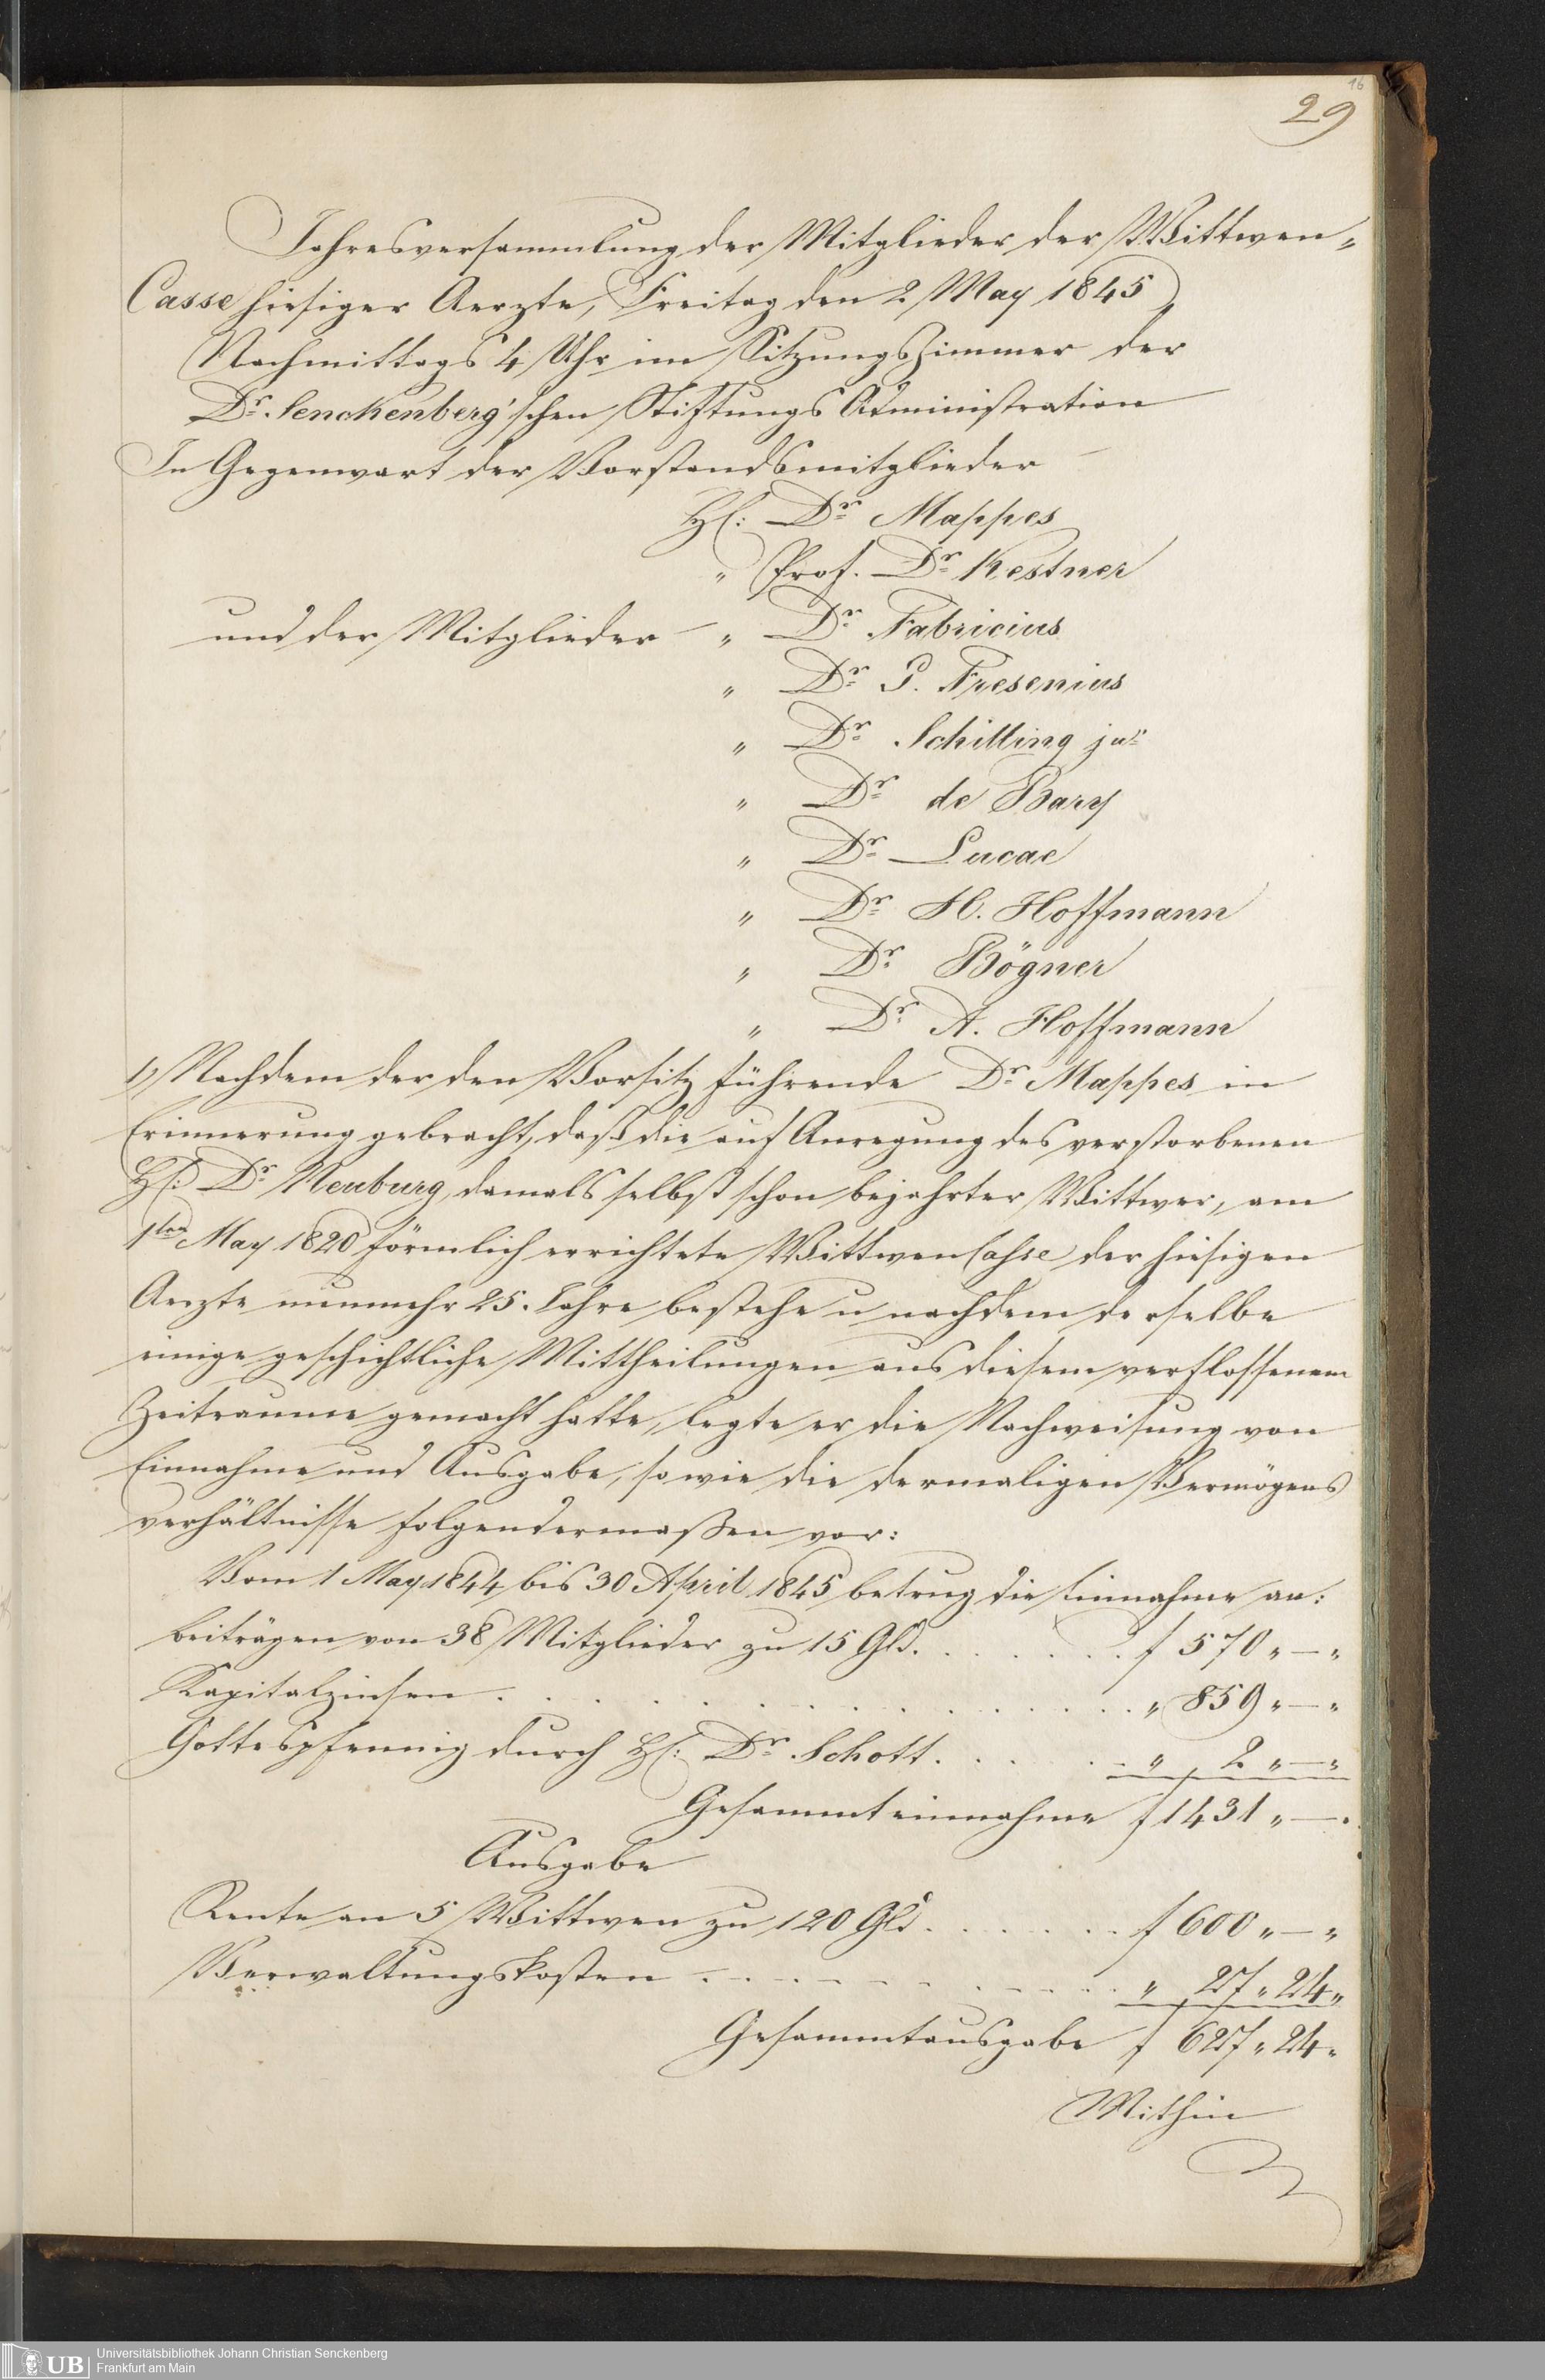 16
29
Jahresversammlung der Mitglieder der Wittwen„
Casse hiesiger Aerzte, Freitag den 2 May 1845
Nachmittags 4 Uhr im Sitzungszimmer der
Dr. Senckenberg'schen Stiftungs Administration
In Gegenwart der Vorstandsmitglieder
H: Dr Mappes
" Prof. Dr Kestner
und der Mitglieder – " Dr Fabricius
" Dr P. Fresenius
" Dr Schilling jun
" Dr de Bary
" Dr Lucae
" Dr H. Hoffmann
" Dr Bögner
" Dr A. Hoffmann
1) Nachdem der den Vorsitz führende Dr Mappes in
Erinnerung gebracht, daß die auf Anregung des verstorbenen
H: Dr Neuburg, damals selbst schon bejahrter Wittwer, am
1ten May 1820 förmlich errichtete Wittwen Casse der hiesigen
Aerzte nunmehr 25. Jahre bestehe u nachdem derselbe
einige geschichtliche Mittheilungen aus diesem verflossenem
Zeitraume gemacht hatte, legte er die Nachweisung von
Einnahme und Ausgabe, sowie die dermaligen Vermögens
verhältnisse folgendermaßen vor:
Vom 1 May 1844 bis 30 April 1845 betrug die Einnahme an:
beiträgen von 38 Mitglieder zu 15 Gld. . . . . . . f 570 „ — „
Kapitalzinsen . . . . . . . . . . . . . . „ 859 „ — „
Gottespfennig durch H: Dr Schott. . . . . . „ 2 „ — „
Gesammteinnahme f 1431 „ — .
Ausgabe
Rente an 5 Wittwen zu 120 Gld. . . . . . . f 600 „ — „
Verwaltungskosten . . . . . . . . . . „ 27 „ 24 „
Gesammtausgabe f 627 „ 24 „
Mithin
UB
Universitätsbibliothek Johann Christian Senckenberg
Frankfurt am Main